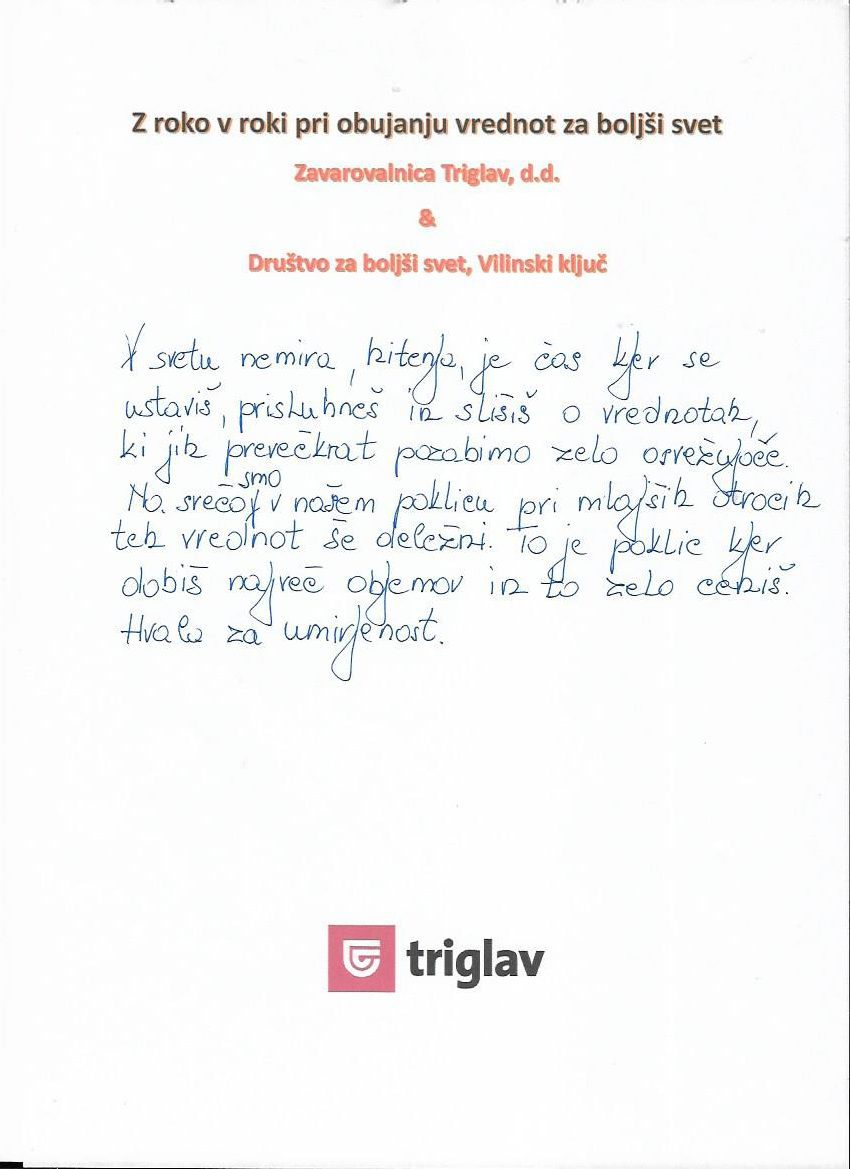 Z roko v roki pri obujanju vrednot za boljši svet
Zavarovalnica Triglav, d.d.
&
Društvo za boljši svet, Vilinski ključ
V svetu nemira, hitenja, je čas kjer se
ustaviš, prisluhneš in slišiš o vrednotah,
ki jih prevečkrat pozabimo zelo osvežujoče.
smo
Na srečo v našem poklicu pri mlajših otrocih
teh vrednot še deležni. To je poklic kjer
dobiš največ objemov in to zelo ceniš.
Hvala za umirjenost.
triglav